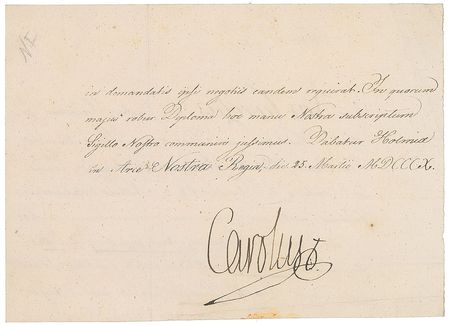 in demandatis ipsi negotiis eandem requirat. In quorum
majus robur Diploma hoc manu Nostra subscriptum
Sigillo Nostro communiri jussimus. Dabatur Holmiæ
in Arce Nostra Regia, die 25 Maii MDCCCX.
Carolus